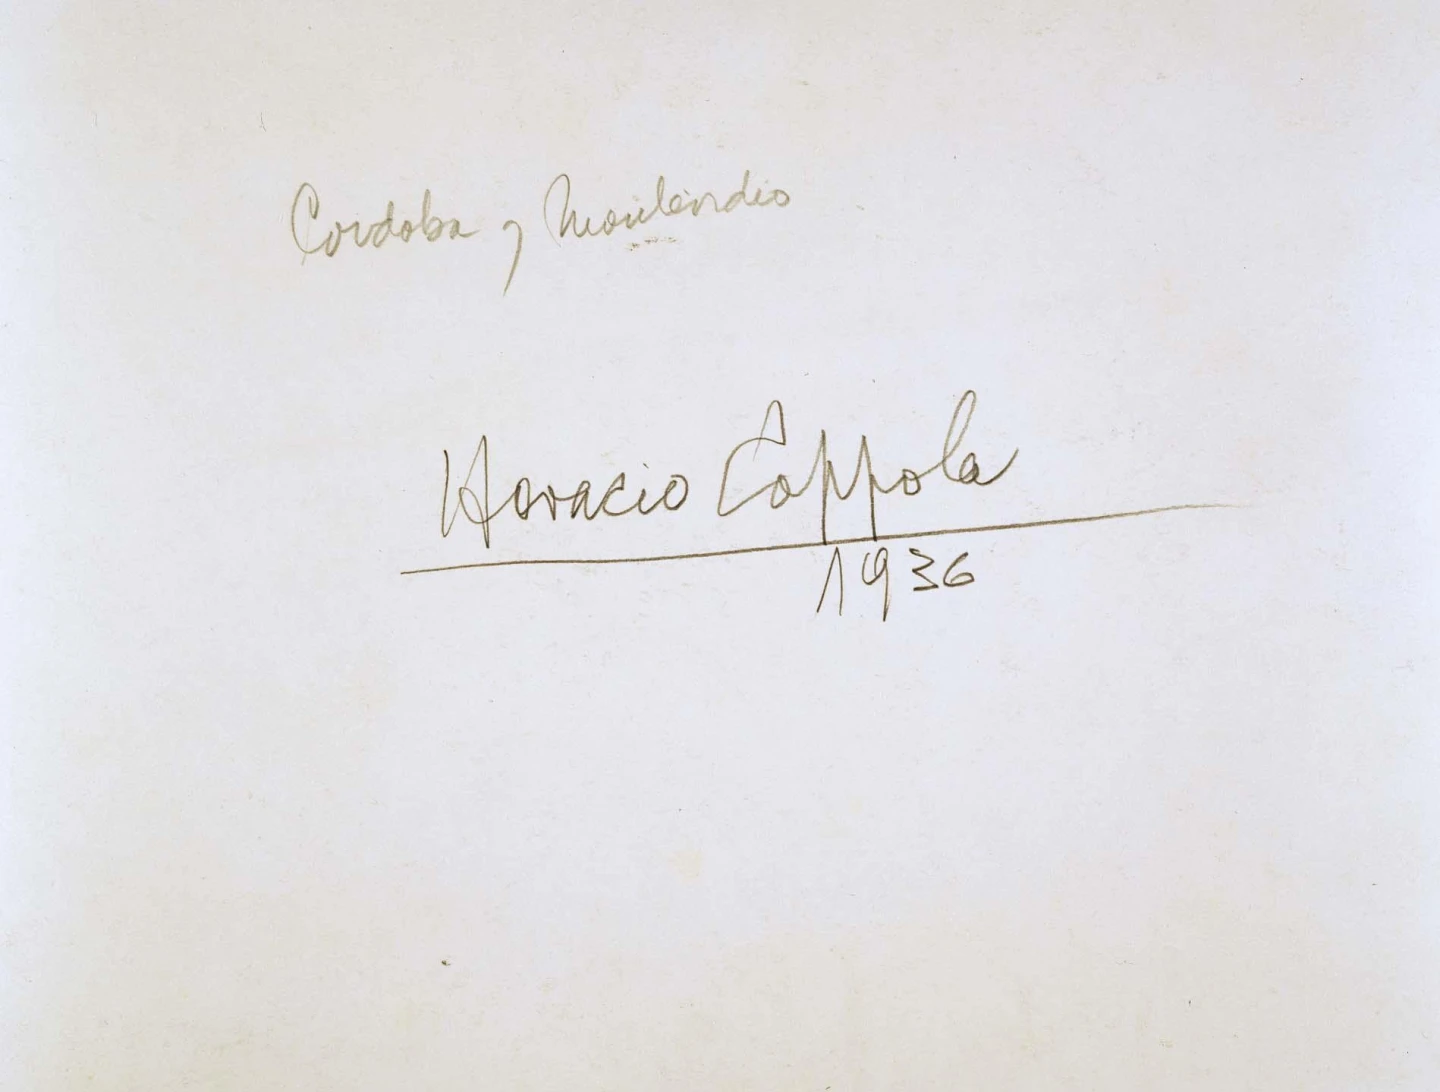 Cordoba y Montevideo
Horacio Coppola
1936